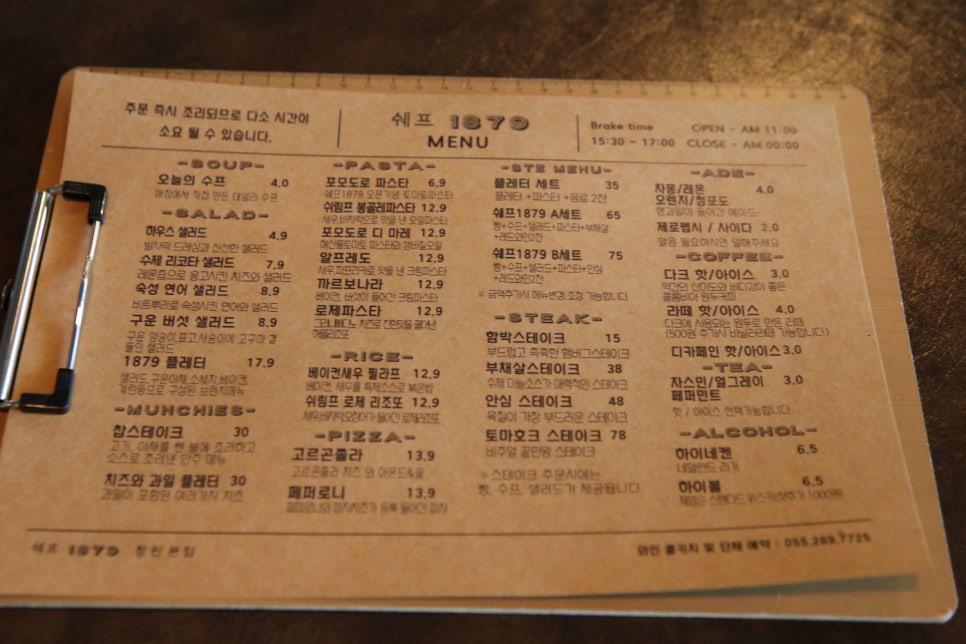 주문 즉시 조리되므로 다소 시간이
소요 될 수 있습니다.
쉐프 1879
MENU
Brake time
15:30 ~ 17:00
OPEN - AM 11:00
CLOSE - AM 00:00
-SOUP-
오늘의 수프 4.0
매장에서 직접 만든 데일리 수프
-SALAD-
하우스 샐러드 4.9
발사믹 드레싱과 신선한 샐러드
수제 리코타 샐러드 7.9
레몬즙으로 응고시킨 치즈와 샐러드
숙성 연어 샐러드 8.9
비트뿌리로 숙성시킨 연어와 샐러드
구운 버섯 샐러드 8.9
구운 양송이,표고,새송이에 고구마 곁
들인 샐러드
1879 플레터 17.9
샐러드,구운야채,소세지,베이컨,
계란등으로 구성된 브런치메뉴
-MUNCHIES-
찹스테이크 30
고기, 야채를 쎈 불에 조리하고
소스로 조려낸 안주 메뉴
치즈와 과일 플레터 30
과일이 포함된 여러가지 치즈
-PASTA-
포모도로 파스타 6.9
쉐프1879 오픈기념 토마토파스타
쉬림프 봉골레파스타 12.9
새우,바지락으로 맛을 낸 오일파스타
포모도로 디 마레 12.9
해산물토마토 파스타와 생바질오일
알프레도 12.9
새우,파프리카로 맛을 낸 크림파스타
까르보나라 12.9
베이컨, 버섯이 들어간 크림파스타
로제파스타 12.9
그라나빠다노 치즈로 진한맛을 끌어낸
-RICE-
베이컨새우 필라프 12.9
베이컨, 새우를 특제소스로 볶은밥
쉬림프 로제 리조또 12.9
새우,바지락,오징어가 들어간 로제리조또
-PIZZA-
고르곤졸라 13.9
고르곤졸라 치즈 와 아몬드&꿀
페퍼로니 13.9
페퍼로니와 피자치즈가 듬뿍 들어간 피자
-STE MENU-
플레터 세트 35
플레터 +파스타 +음료 2잔
쉐프1879 A세트 65
빵+수프+샐러드+파스타+부채살
+레드와인2잔
쉐프1879 B세트 75
빵+수프+샐러드+파스타+안심
+레드와인2잔
※ 금액추가시 메뉴변경,조정 가능합니다.
-STEAK-
함박스테이크 15
부드럽고 촉촉한 햄버그스테이크
부채살스테이크 38
수제 마늘소스가 매력적인 스테이크
안심 스테이크 48
육질이 가장 부드러운 스테이크
토마호크 스테이크 78
비주얼 끝판왕 스테이크
※ 스테이크 주문시에는
빵, 수프, 샐러드가 제공됩니다
-ADE-
자몽/레몬 4.0
오렌지/청포도
생과일이 들어간 에이드
제로펩시 / 사이다 2.0
얼음 필요하시면 말해주세요
-COFFEE-
다크 핫/아이스 3.0
약간의 산미도와 바디감이 좋은
콜롬비아 원두커피
라떼 핫/아이스 4.0
다크에 사용되는 원두로 만든 라떼
(500원 추가시 바닐라라떼 가능합니다)
디카페인 핫/아이스 3.0
-TEA-
자스민/얼그레이 3.0
페퍼민트
핫 / 아이스 선택가능합니다.
-ALCOHOL-
하이네켄 6.5
네덜란드 라거
하이볼 6.5
제임슨 스탠다드 위스키(샷추가 1000원)
쉐프 1879 창원 본점
와인 콜키지 및 단체 예약 : 055.289.7725